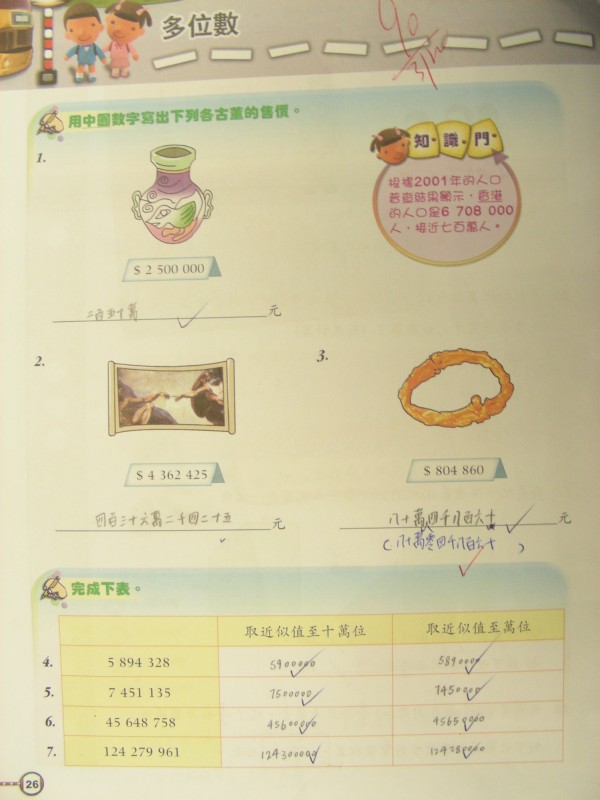 多位數
90
用中國數字寫出下列各古董的售價。
知識門
根據2001年的人口
普查結果顯示，香港
的人口是6 708 000
人，接近七百萬人。
1.
$ 2 500 000
二百五十萬 元
2.
3.
$ 4 362 425
$ 804 860
四百三十六萬二千四二十五 元
八十萬四千八百六十 元
(八十萬零四千八百六十)
完成下表。
取近似值至十萬位 取近似值至萬位
4. 5 894 328 5900000 5890000
5. 7 451 135 7500000 7450000
6. 45 648 758 45600000 45650000
7. 124 279 961 124300000 124280000
26